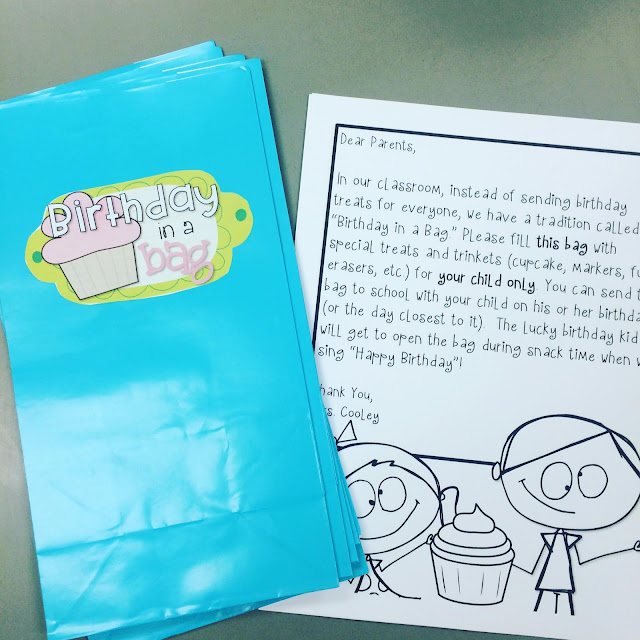 Birthday
in a
bag
Dear Parents,
In our classroom, instead of sending birthday
treats for everyone, we have a tradition called
"Birthday in a Bag." Please fill this bag with
special treats and trinkets (cupcake, markers, fu
erasers, etc.) for your child only. You can send t
bag to school with your child on his or her birthda
(or the day closest to it). The lucky birthday kid
will get to open the bag during snack time when w
sing "Happy Birthday"!
hank You,
rs. Cooley